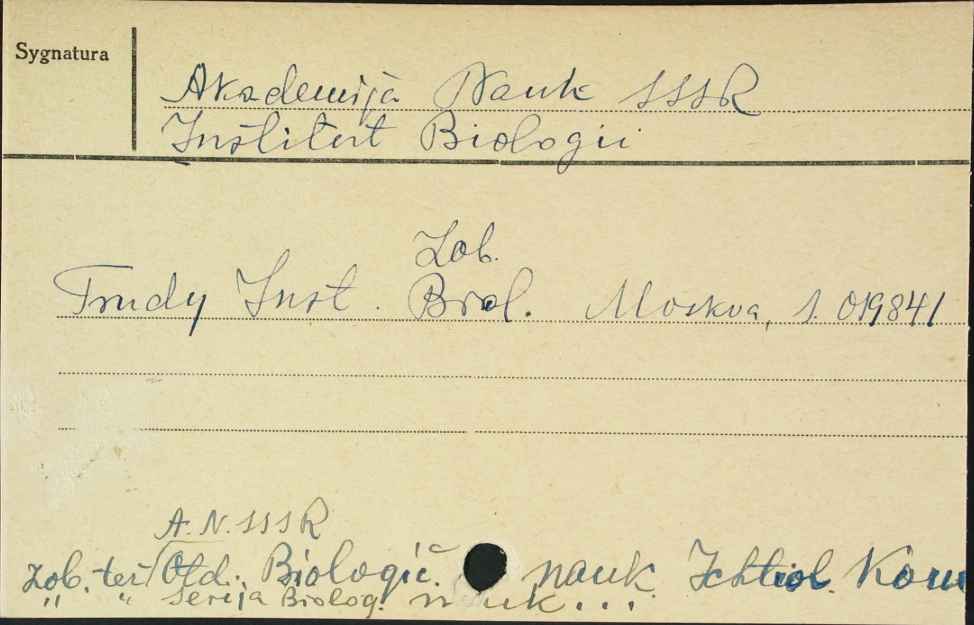 Sygnatura
Akademija Nauk SSSR
Institut Biologii
Zob.
Trudy Inst. Biol. Moskva, S. 019841
A.N. SSSR
Zob. też Otd. Biologič. nauk Ichtiol. Kom
" " Serija Biolog. nauk...